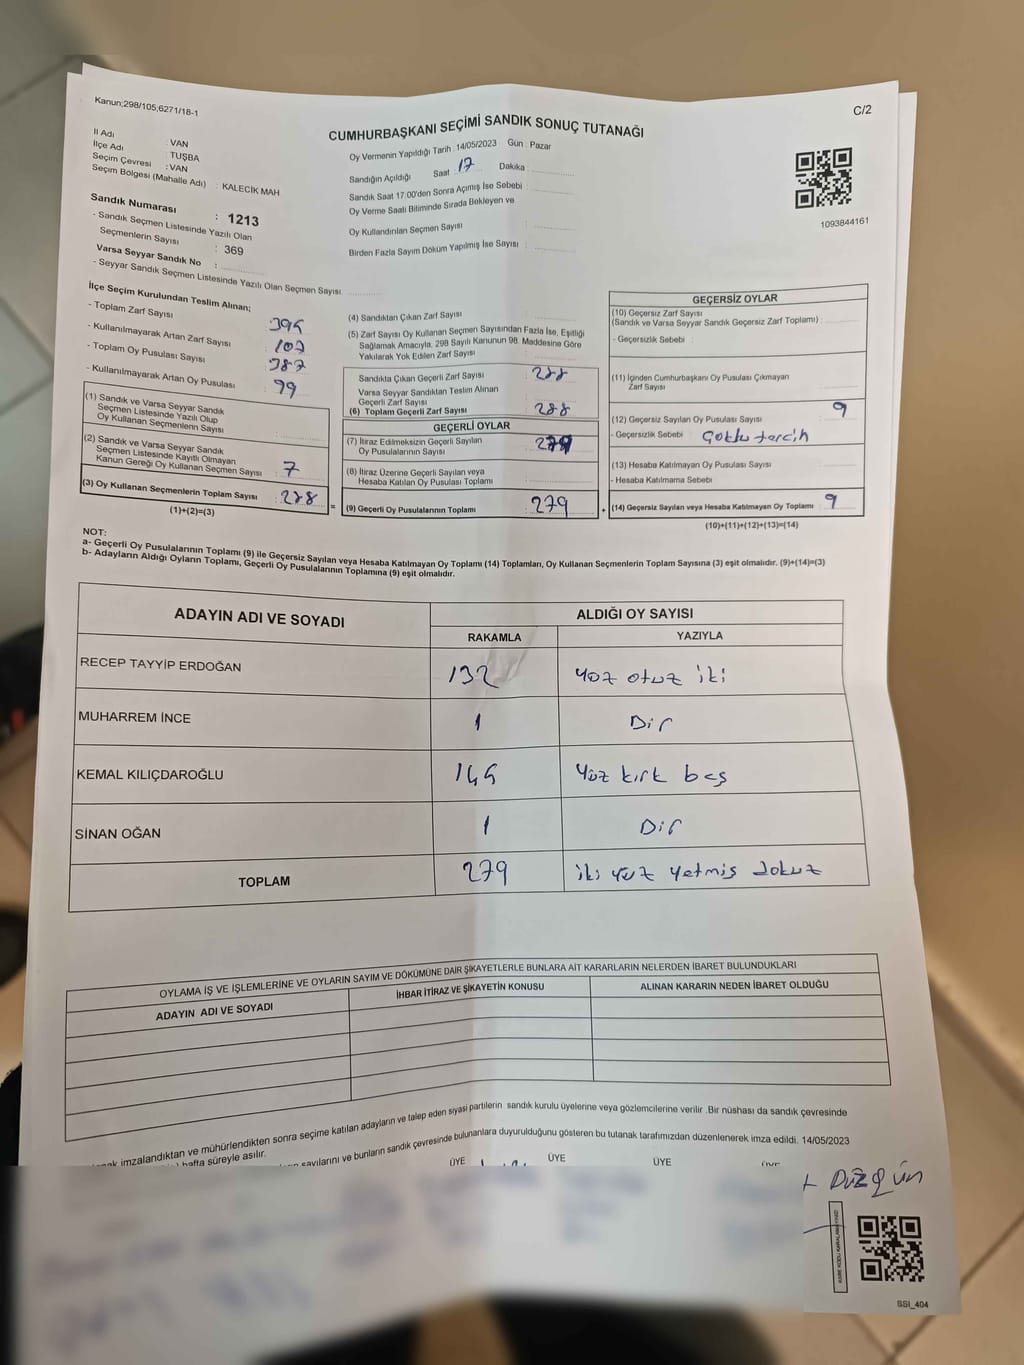 Kanun;298/105;6271/18-1
C/2
CUMHURBAŞKANI SEÇİMİ SANDIK SONUÇ TUTANAĞI
İl Adı : VAN
İlçe Adı : TUŞBA
Seçim Çevresi : VAN
Seçim Bölgesi (Mahalle Adı) : KALECİK MAH
Oy Vermenin Yapıldığı Tarih : 14/05/2023 Gün : Pazar
Sandığın Açıldığı Saat 17 Dakika :
Sandık Saat 17:00'den Sonra Açımış İse Sebebi :
Oy Verme Saati Bitiminde Sırada Bekleyen ve
Oy Kullandırılan Seçmen Sayısı :
Birden Fazla Sayım Döküm Yapılmış İse Sayısı :
1093844161
Sandık Numarası : 1213
- Sandık Seçmen Listesinde Yazılı Olan
Seçmenlerin Sayısı : 369
Varsa Seyyar Sandık No :
- Seyyar Sandık Seçmen Listesinde Yazılı Olan Seçmen Sayısı:
İlçe Seçim Kurulundan Teslim Alınan;
- Toplam Zarf Sayısı :
- Kullanılmayarak Artan Zarf Sayısı :
- Toplam Oy Pusulası Sayısı : 387
- Kullanılmayarak Artan Oy Pusulası : 99
(1) Sandık ve Varsa Seyyar Sandık
Seçmen Listesinde Yazılı Olup
Oy Kullanan Seçmenlerin Sayısı :
(2) Sandık ve Varsa Seyyar Sandık
Seçmen Listesinde Kayıtlı Olmayan
Kanun Gereği Oy Kullanan Seçmen Sayısı : 7
(3) Oy Kullanan Seçmenlerin Toplam Sayısı : 288
(1)+(2)=(3)
(4) Sandıktan Çıkan Zarf Sayısı :
(5) Zarf Sayısı Oy Kullanan Seçmen Sayısından Fazla İse, Eşitliği
Sağlamak Amacıyla, 298 Sayılı Kanunun 98. Maddesine Göre
Yakılarak Yok Edilen Zarf Sayısı :
Sandıkta Çıkan Geçerli Zarf Sayısı : 288
Varsa Seyyar Sandıktan Teslim Alınan
Geçerli Zarf Sayısı
(6) Toplam Geçerli Zarf Sayısı : 288
GEÇERLİ OYLAR
(7) İtiraz Edilmeksizin Geçerli Sayılan
Oy Pusulalarının Sayısı : 279
(8) İtiraz Üzerine Geçerli Sayılan veya
Hesaba Katılan Oy Pusulası Toplamı :
= (9) Geçerli Oy Pusulalarının Toplamı : 279
GEÇERSİZ OYLAR
(10) Geçersiz Zarf Sayısı
(Sandık ve Varsa Seyyar Sandık Geçersiz Zarf Toplamı) :
- Geçersizlik Sebebi :
(11) İçinden Cumhurbaşkanı Oy Pusulası Çıkmayan
Zarf Sayısı :
(12) Geçersiz Sayılan Oy Pusulası Sayısı : 9
- Geçersizlik Sebebi : Çoklu tercih
(13) Hesaba Katılmayan Oy Pusulası Sayısı :
- Hesaba Katılmama Sebebi :
+ (14) Geçersiz Sayılan veya Hesaba Katılmayan Oy Toplamı : 9
(10)+(11)+(12)+(13)=(14)
NOT:
a- Geçerli Oy Pusulalarının Toplamı (9) ile Geçersiz Sayılan veya Hesaba Katılmayan Oy Toplamı (14) Toplamları, Oy Kullanan Seçmenlerin Toplam Sayısına (3) eşit olmalıdır. (9)+(14)=(3)
b- Adayların Aldığı Oyların Toplamı, Geçerli Oy Pusulalarının Toplamına (9) eşit olmalıdır.
ADAYIN ADI VE SOYADI ALDIĞI OY SAYISI
RAKAMLA YAZIYLA
RECEP TAYYİP ERDOĞAN 132 yüz otuz iki
MUHARREM İNCE 1 Bir
KEMAL KILIÇDAROĞLU 145 Yüz kırk beş
SİNAN OĞAN 1 Bir
TOPLAM 279 iki yüz yetmiş dokuz
OYLAMA İŞ VE İŞLEMLERİNE VE OYLARIN SAYIM VE DÖKÜMÜNE DAİR ŞİKAYETLERLE BUNLARA AİT KARARLARIN NELERDEN İBARET BULUNDUKLARI
ADAYIN ADI VE SOYADI İHBAR İTİRAZ VE ŞİKAYETİN KONUSU ALINAN KARARIN NEDEN İBARET OLDUĞU
imzalandıktan ve mühürlendikten sonra seçime katılan adayların ve talep eden siyasi partilerin sandık kurulu üyelerine veya gözlemcilerine verilir .Bir nüshası da sandık çevresinde
hafta süreyle asılır.
sayılarını ve bunların sandık çevresinde bulunanlara duyurulduğunu gösteren bu tutanak tarafımızdan düzenlenerek imza edildi. 14/05/2023
ÜYE ÜYE ÜYE
DÜZGÜN
SSI_404